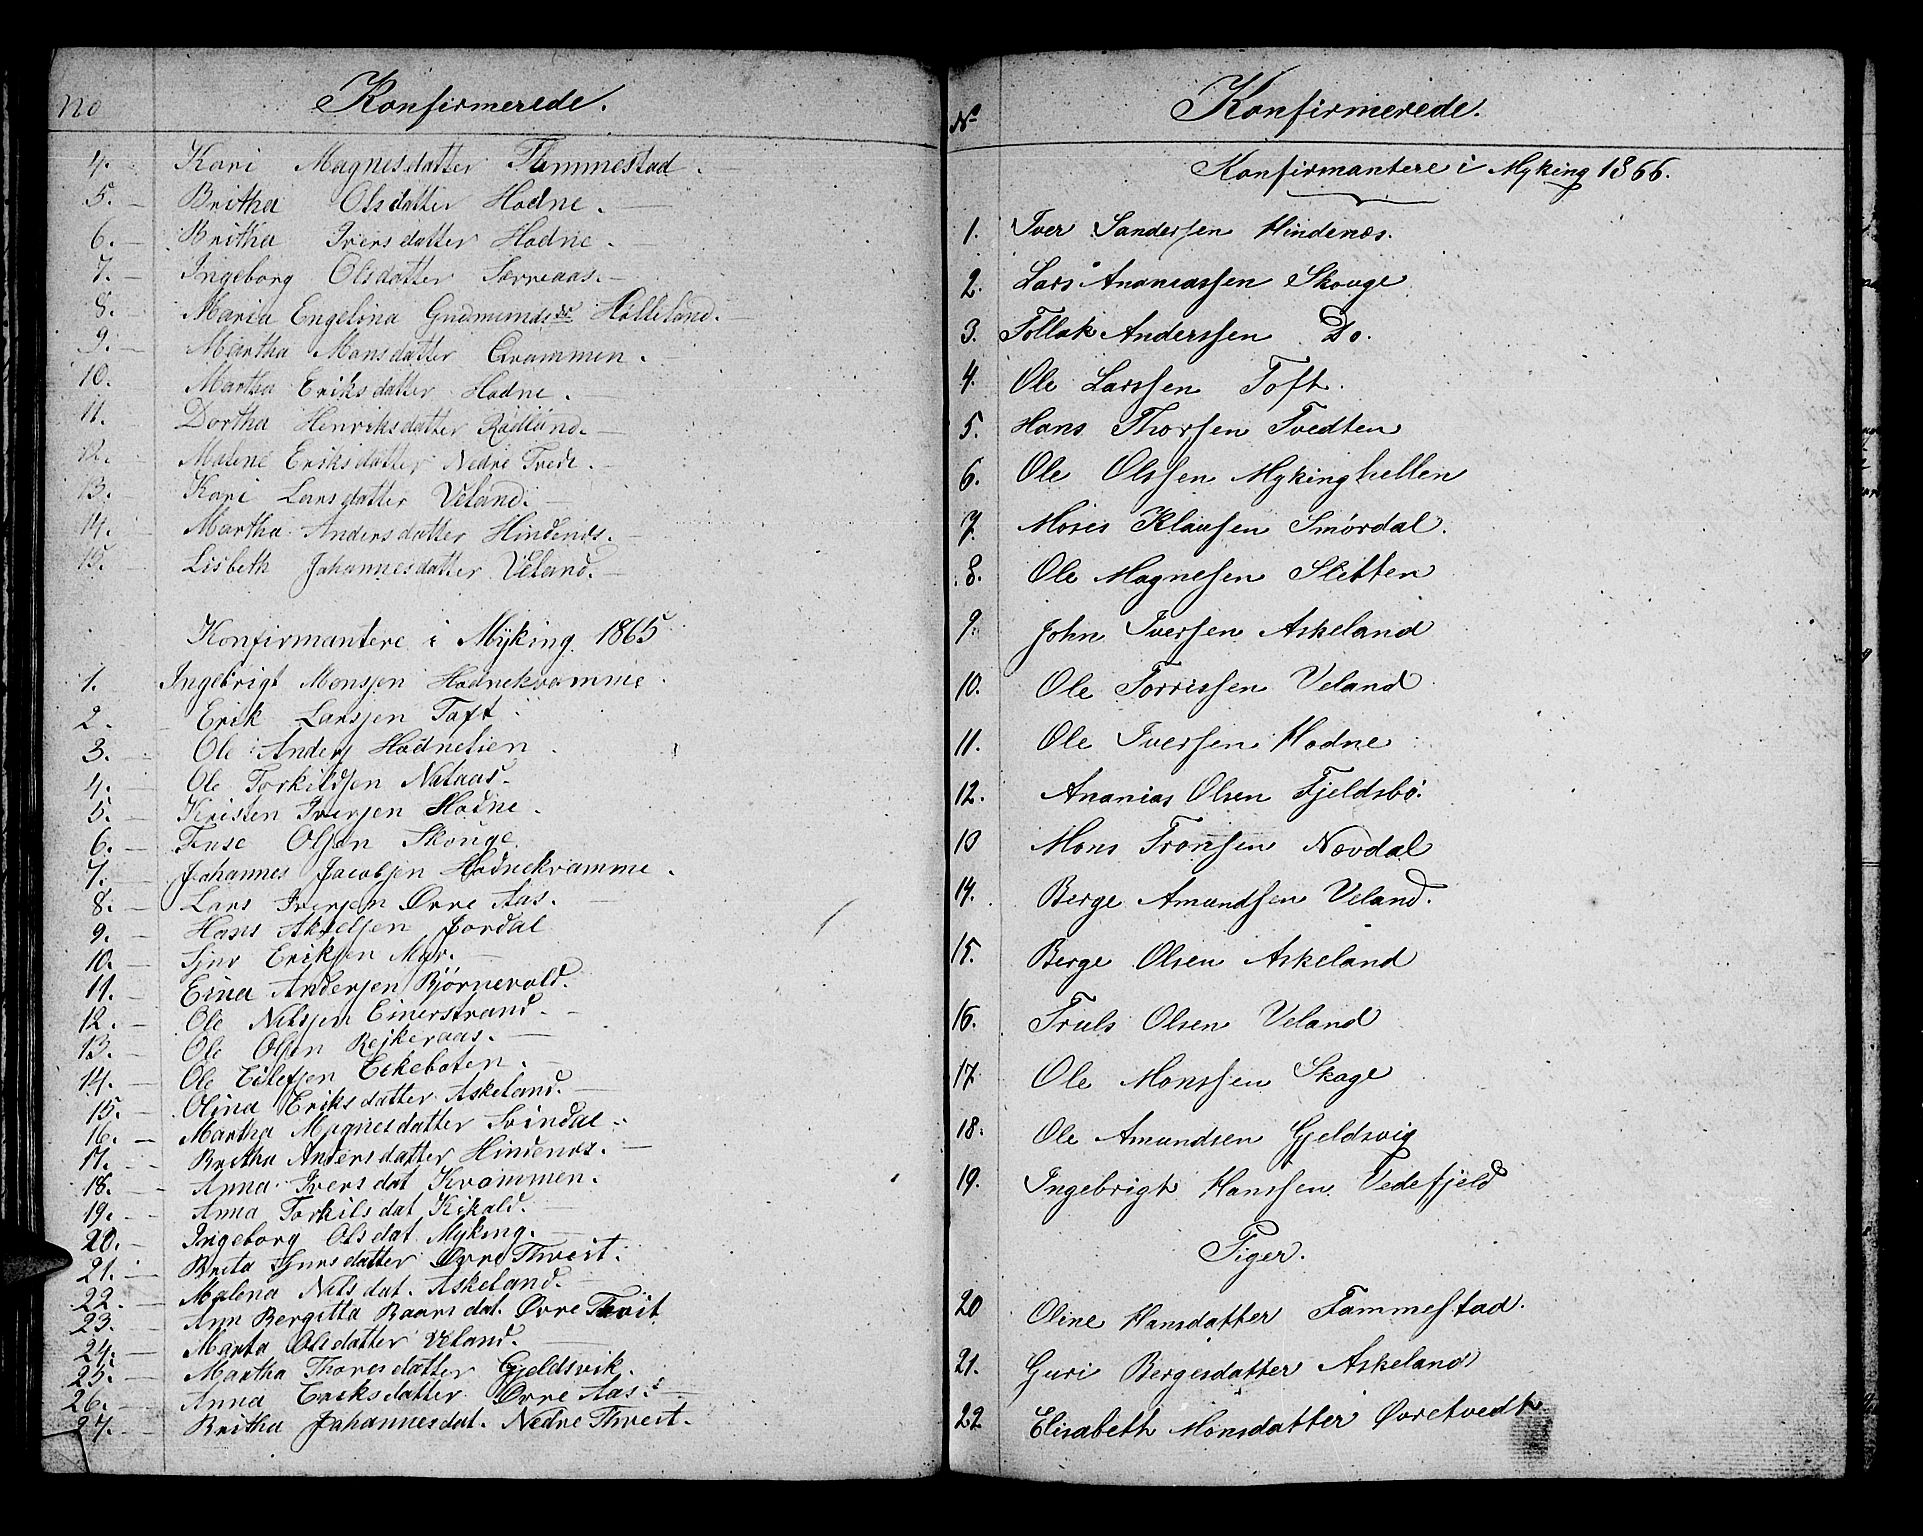 No Konfirmerede.
4. Kari Magnesdatter Tammestad.
5. Britha Olsdatter Hodne.
6. Britha Iversdatter Hodne.
7. Ingeborg Olsdatter Særreaas.
8. Maria Engelina Gudmundsdr Hølleland.
9. Martha Monsdatter Qvammen.
10. Martha Eriksdatter Hodne.
11. Dortha Henriksdatter Rødland.
12. Malene Eriksdatter Nedre Tvedt.
13. Kari Larsdatter Veland.
14. Martha Andersdatter Hindenes.
15. Lisbeth Johannesdatter Veland.
Konfirmantere i Myking 1865
1. Ingebrigt Monsjen Hodnekvamme.
2. Erik Larsjen Toft.
3. Ole Anders Hodnelien.
4. Ole Torkildsjen Nataas.
5. Kristen Iversjen Hodne.
6. Olsjen Skouge
7. Johannes Jacobsjen Hodnekvamme.
8. Lars Iversjen Øvre Aas.
9. Hans Akseljen Jordal
10. Sjur Eriksjen Myr.
11. Einar Andersjen Bjørnevold.
12. Ole Nilsjen Einerstrand.
13. Ole Olsjen Rejkeraas.
14. Ole Eilefsjen Eekeboten.
15. Olina Eriksdatter Askeland.
16. Martha Magnesdatter Svindal.
17. Britha Andersdatter Hindenes.
18. Anna Iversdat Kvammen.
19. Anna Torkilsdat Kikald.
20. Ingeborg Olsdat. Myking.
21. Brita Sjursdatter Øvre Thveit.
22. Malena Nilsdat. Askeland.
23. Ann Bergitta Baarsdat. Øvre Thveit.
24. Marta Olsdatter Veland.
25. Martha Thoresdatter Gjeldsvik.
26. Anna Eriksdatter Øvre Aas.
27. Britha Johannesdat. Nedre Thveit.
No Konfirmerede.
Konfirmantere i Myking 1866.
1. Iver Sanderssen Hindenæs.
2. Lars Ananiassen Skouge
3. Tollak Anderssen Do.
4. Ole Larssen Toft.
5. Hans Thorsen Tvedten
6. Ole Olssen Mykinghellen
7. Moses Klausen Smørdal.
8. Ole Magnesen Sletten
9. John Iversen Askeland
10. Ole Torrissen Veland
11. Ole Iversen Hodne
12. Ananias Olsen Fjeldsbø.
13 Mons Tronsen Nævdal
14. Berge Amundsen Veland.
15. Berge Olsen Askeland
16. Truls Olsen Veland
17. Ole Monssen Skage
18. Ole Amundsen Gjeldsvig
19. Ingebrigt Hanssen Vedefjeld
Piger.
20 Oline Hansdatter Tammestad.
21. Guri Bergesdatter Askeland
22 Elisabeth Monsdatter Øvretvedt